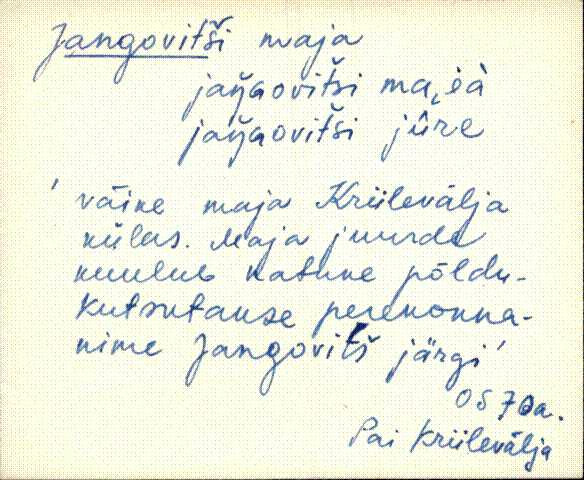 Jangovitši maja
jaŋgovitši ma
jaŋgovitši jûre
' väike maja Kriilevälja
külas. Maja juurde
kuulub natuke põldu.
Kutsutakse perekonna-
nime Jangovitš järgi'
OS 70a.
Pai Kriilevälja